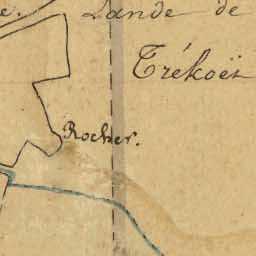 e.
Lande de
Trékoët
Rocher.